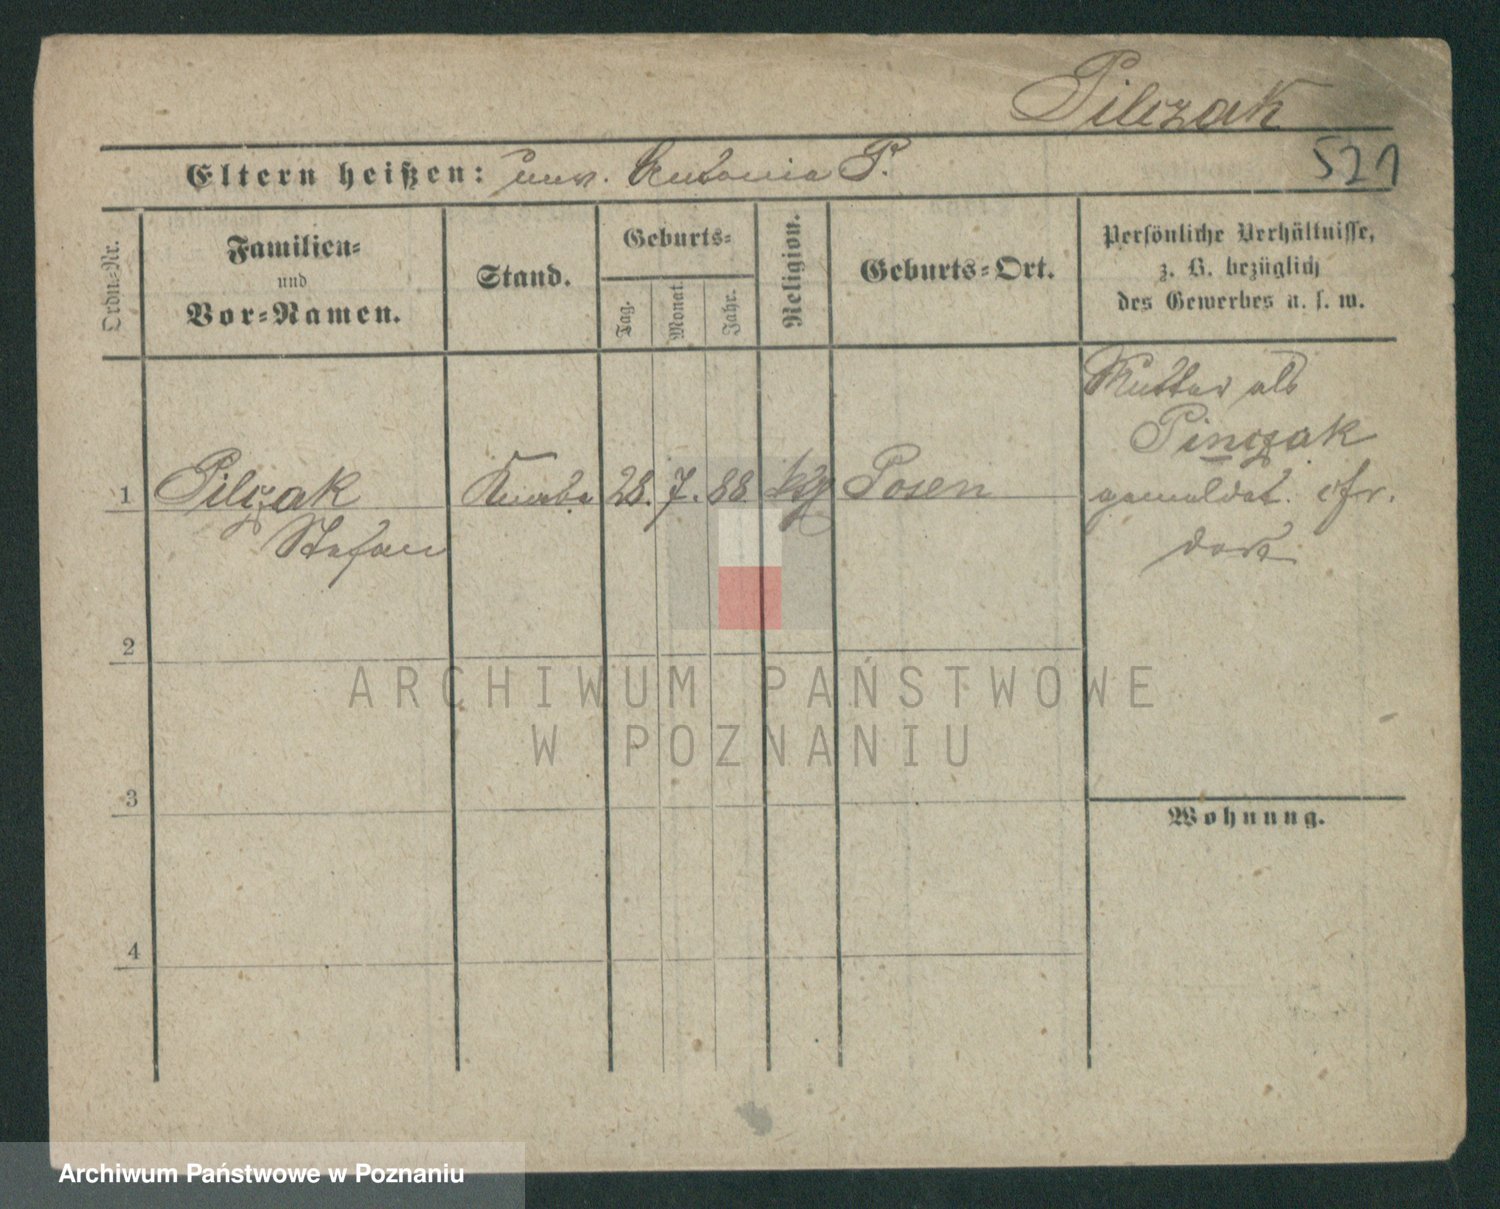 Pilczak
521
Eltern heißen: unv. Antonia P.
Ordn=Nr.
Familien=
und
Vor=Namen.
Stand.
Geburts=
Tag.
Monat.
Jahr.
Religion.
Geburts=Ort.
Persönliche Verhältnisse,
z. B. bezüglich
des Gewerbes u. s. w.
1 Pilczak Knabe 28. 7. 88 Posen
Stefan
Mutter als
Pinczak
gemeldet. cfr.
dort
2
3
4
Wohnung.
ARCHIWUM PAŃSTWOWE
W POZNANIU
Archiwum Państwowe w Poznaniu